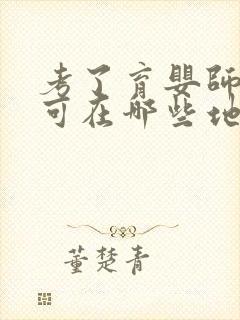 考了育嬰師
可在哪些地
董楚青